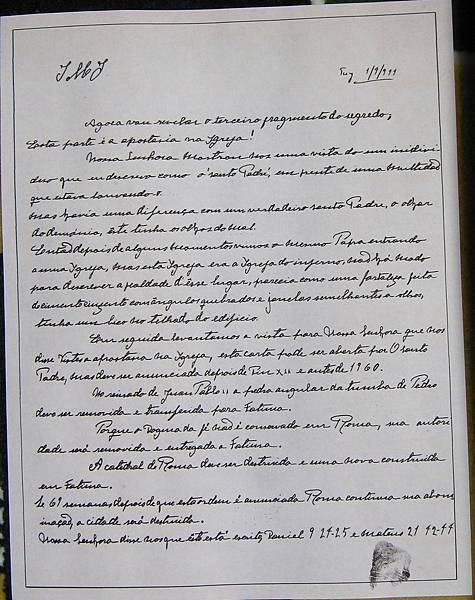 JMJ
Tuy 1/9/944
Agora vou revelar o terceiro fragmento do segredo;
Esta parte é a apostasia na Igreja!
Nossa Senhora mostrou nos uma vista do um individi
duo que eu descrevo como o 'santo Padre', em frente de uma multidão
que estava louvando o.
Mas havia uma diferença com um verdadeiro santo Padre, o olhar
do demónio, este tinha os olhos do mal.
Então depois de alguns momentos vimos o mesmo Papa entrando
a uma Igreja, mas esta Igreja era a Igreja do inferno, não há modo
para descrever a fealdade d'êsse lugar, parecia como uma fortaleza feita
de cimento cinzento com ângulos quebrados e janelas semelhantes a olhos,
tinha um bico no telhado do edifício.
Em seguida levantamos a vista para Nossa Senhora que nos
disse Vistes a apostasia na Igreja, esta carta pode ser aberta por O santo
Padre, mas deve ser anunciada depois de Pio XII e antes de 1960.
No reinado de Juan Pablo II a pedra angular da tumba de Pedro
deve ser removida e transferida para Fatima.
Porque o Dogma da fé não é conservado em Roma, sua autori
dade será removida e entregada a Fatima.
A catedral de Roma deve ser destruida e uma nova construida
em Fatima.
Se 69 semanas depois de que esta ordem é anunciada Roma continua sua abom
inação, a cidade será destruida.
Nossa Senhora disse nos que este está escrito, Daniel 9 24-25 e Mateus 21 42-44